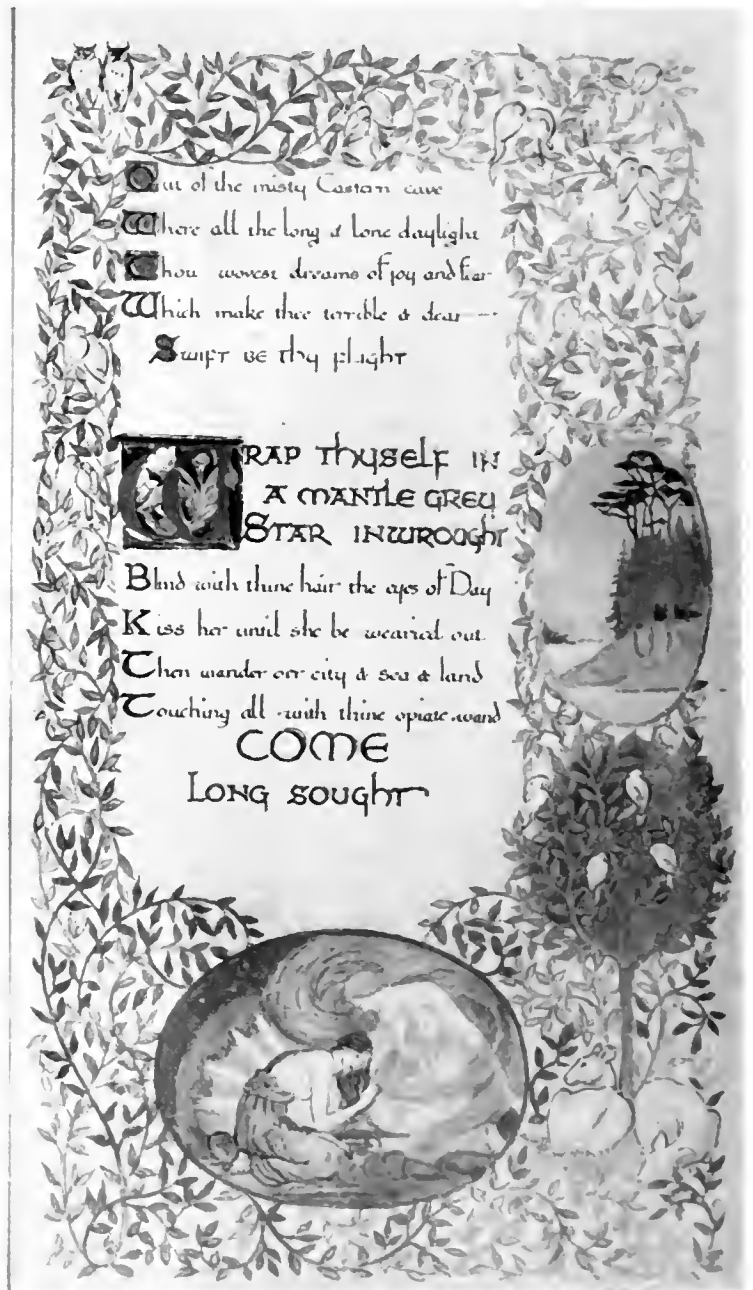 Out of the misty Eastern cave
Where all the long & lone daylight
Thou wovest dreams of joy and fear
Which make thee terrible & dear —
SWIFT BE thy flight
WRAP thyself IN
A MANTLE GREY
STAR INWROUGHT
Blind with thine hair the eyes of Day
Kiss her until she be wearied out
Then wander oer city & sea & land
Touching all with thine opiate wand
COME
LONG SOUGHT